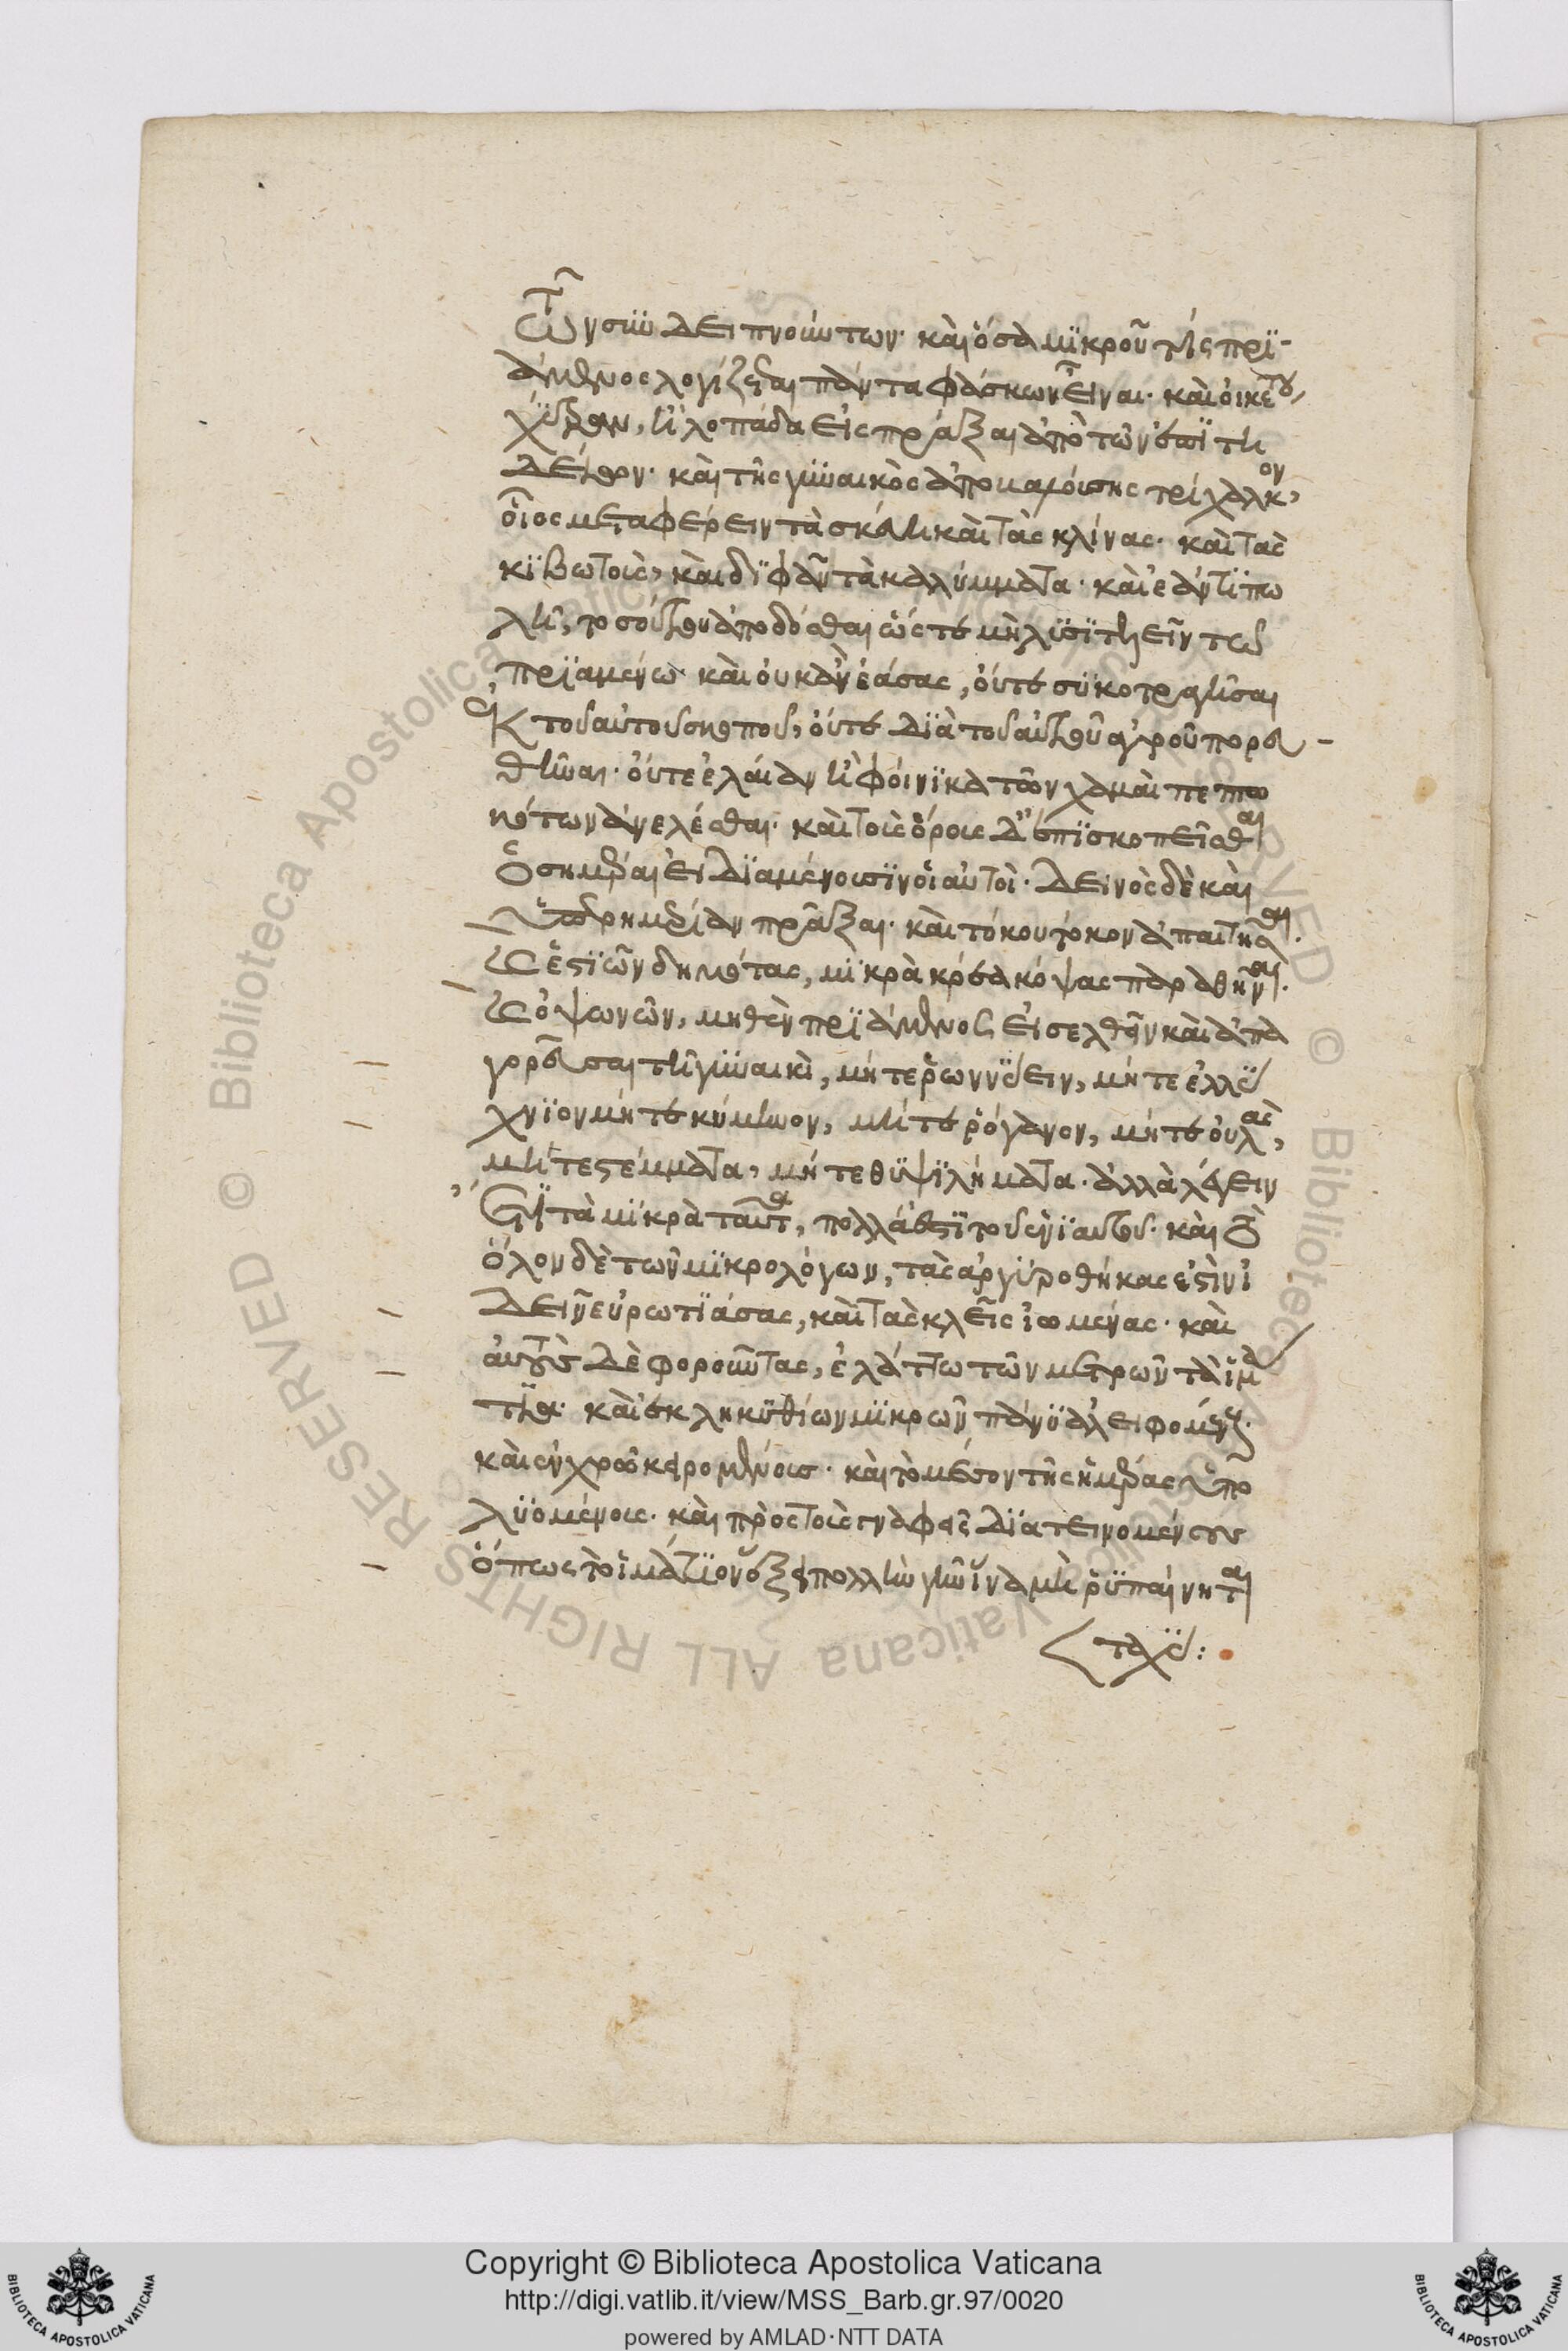 τῶν συνδειπνούντων· καὶ ὅσα μικροῦ τίς πρϊ-
άμενος λογίζεσθαι πάντα φάσκων εἶναι· καὶ οἰκέτου
χύτραν, ἢ λοπάδα εἰσπράξαι ἀπὸ τῶν ἐπϊτη
δείων· καὶ τῆς γυναικὸς ἀποβαλούσης τρίχαλκον,
οἷος μεταφέρειν τὰ σκεύη καὶ τὰς κλίνας· καὶ τὰς
κϊβωτοὺς, καὶ διφᾶν τὰ καλύμματα· καὶ ἐάν τϊ πω
λῇ, τοσούτου ἀποδόσθαι ὥστε μὴ λυσϊτελεῖν τῷ
πρϊαμένω· καὶ οὐκ ἂν ἐάσας, οὔτε συκοτραγῆσαι
ἐκ τοῦ αὐτοῦ κήπου, οὔτε διὰ τοῦ αὐτοῦ ἀγροῦ πορευ-
θῆναι· οὔτε ἐλαίαν ἢ φοίνϊκα τῶν χαμαὶ πεπτω
κότων ἀνελέσθαι· καὶ τοὺς ὅρους δ' ἐπϊσκοπεῖσθαι
ὁσημέραι εἰ διαμένουσϊν οἱ αὐτοί· δεινὸς δὲ καὶ
ὑπερημερίαν πρᾶξαι· καὶ τόκου τόκον ἀπαιτῆσαι·
καὶ ἑστιῶν δημότας, μϊκρὰ κρέα κόψας παραθεῖναι·
καὶ ὀψωνῶν, μηθὲν πρϊάμενος εἰσελθεῖν καὶ ἀπα
γορεῦσαι τῇ γυναικὶ, μήτε ἁρωννύειν, μήτε ἐλλύ
χνϊον μήτε κύμινον, μήτε ὀρίγανον, μήτε οὐλὰς,
μήτε στέμματα, μήτε θυηλήματα· ἀλλὰ λέγειν
ὅτϊ τὰ μϊκρὰ ταῦτα, πολλά ἐστϊ τοῦ ἐνϊαυτοῦ· καὶ τὸ
ὅλον δὲ τῶν μϊκρολόγων, τὰς ἀργυροθήκας ἐστὶν ἰ
δεῖν εὐρωτϊάσας, καὶ τὰς κλεῖς ἰωμένας· καὶ
αὐτοὺς δὲ φοροῦντας, ἐλάττω τῶν μετρῶν τὰ ἱμά
τϊα· καὶ ἐκ ληκυθίων μϊκρῶν πάνϋ ἀλειφομένους·
καὶ ἐν χρῷ κειρομένους· καὶ τὸ μέσον τῆς ἡμέρας ὑπο
λυομένους· καὶ πρὸς τοὺς γναφεῖς διατεινομένους
ὅπως τὸ ἱμάτϊον ἕξει πολλὴν γῆν ἵνα μὴ ῥϋπαίνηται
ταχύ:
Copyright © Biblioteca Apostolica Vaticana
http://digi.vatlib.it/view/MSS_Barb.gr.97/0020
powered by AMLAD·NTT DATA